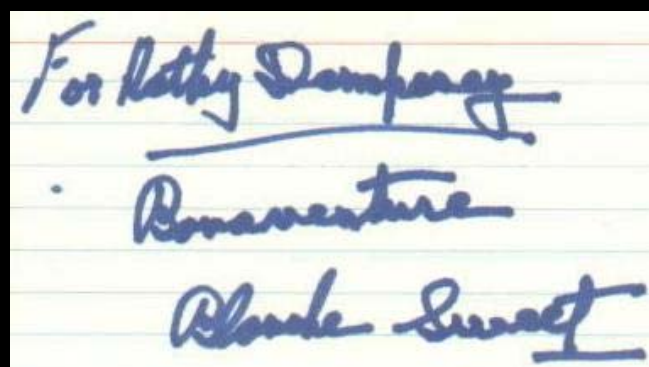 For Kathy Dempsey
Bonaventure
Blanche Sweet